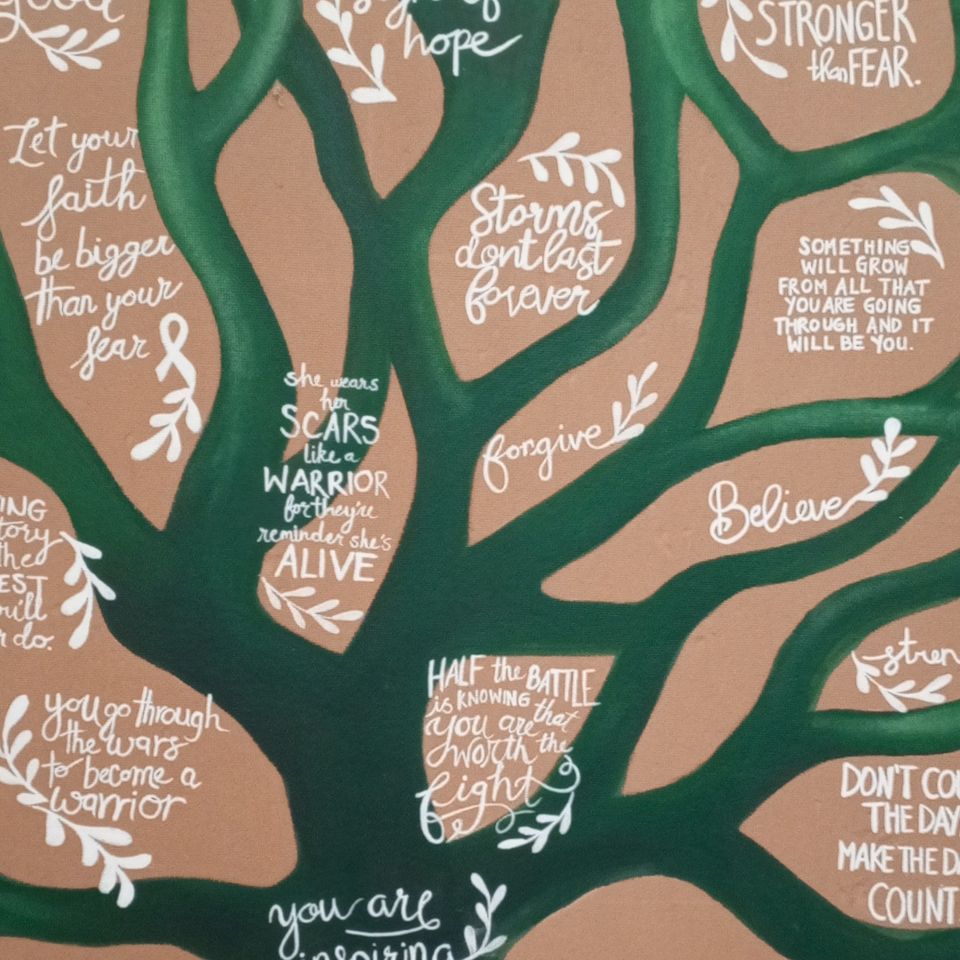 good
hope
STRONGER
than FEAR.
Let your
faith
be bigger
than your
fear
Storms
dont last
forever
SOMETHING
WILL GROW
FROM ALL THAT
YOU ARE GOING
THROUGH AND IT
WILL BE YOU.
she wears
her
SCARS
like a
WARRIOR
for they're
reminder she's
ALIVE
forgive
Believe
ING
tory
the
EST
will
r do.
HALF the BATTLE
is KNOWING that
you are
worth the
fight
stren
you go through
the wars
to become a
warrior
DON'T COU
THE DAY
MAKE THE DA
COUNT
you are
inspiring